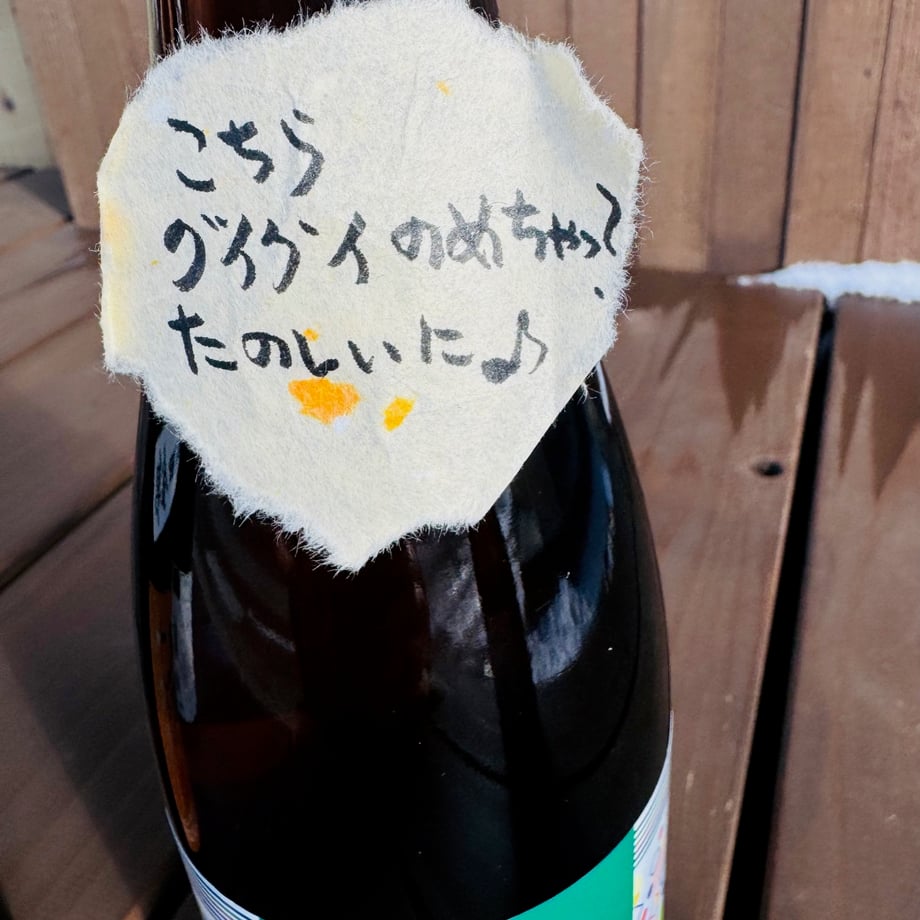 こちら
グイグイのめちゃっ?
たのしいに♪